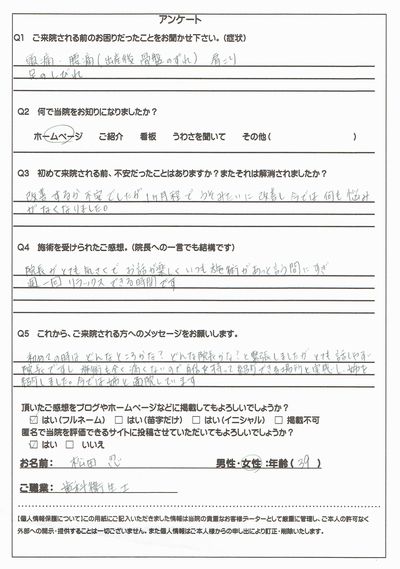 アンケート
Q1 ご来院される前のお困りだったことをお聞かせ下さい。(症状)
頭痛・腰痛(出産後 骨盤のずれ) 肩こり
足のしびれ
Q2 何で当院をお知りになりましたか？
ホームページ ご紹介 看板 うわさを聞いて その他( )
Q3 初めて来院される前、不安だったことはありますか？またそれは解消されましたか？
改善するか不安でしたが1ヶ月程でうそみたいに改善し今では何も悩み
がなくなりました。
Q4 施術を受けられたご感想。(院長への一言でも結構です)
院長がとても気さくでお話が楽しくいつも施術があっと言う間にすぎ
週一回リラックスできる時間です
Q5 これから、ご来院される方へのメッセージをお願いします。
初めての時はどんなところかな？どんな院長かな？と緊張しましたがとても話しやすい
院長ですし施術も全く痛くないので自信を持って紹介できる場所と実感し姉を
紹介しました。今では姉と通院しています
頂いたご感想をブログやホームページなどに掲載してもよろしいでしょうか？
☑ はい(フルネーム) □ はい(苗字だけ) □ はい(イニシャル) □ 掲載不可
匿名で当院を評価できるサイトに投稿させていただいてもよろしいでしょうか？
☑ はい □ いいえ
お名前： 松田 忍 男性・女性：年齢( 39 )
ご職業： 歯科衛生士
【個人情報保護について】この用紙にご記入いただきました情報は当院の貴重なお客様データーとして厳重に管理し、ご本人の許可なく
外部への開示・提供することは一切ございません。また個人情報はご本人様からの申し出により訂正・削除いたします。